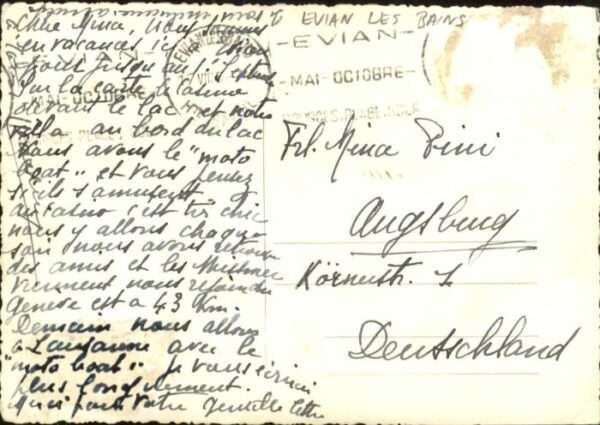 EVIAN LES BAINS
EVIAN
MAI-OCTOBRE
Chère Mina, nous sommes
en vacances ici à Evian
pour jusqu'au 1 Septembre
Sur la carte le casino
devant le lac et notre
villa au bord du lac
nous avons le "moto
boat" et vous pensez
s'ils s'amusent
au casino c'est très chic
nous y allons chaque
soir nous avons retrouvé
des amis et les
viennent nous rejoindre
Genève est à 43 Km.
Demain nous allons
à Lausanne avec le
"moto boat" je vous écrirai
plus longuement.
Merci pour votre gentille lettre
Frl. Mina Pini
Augsburg
Körnerstr. 1
Deutschland